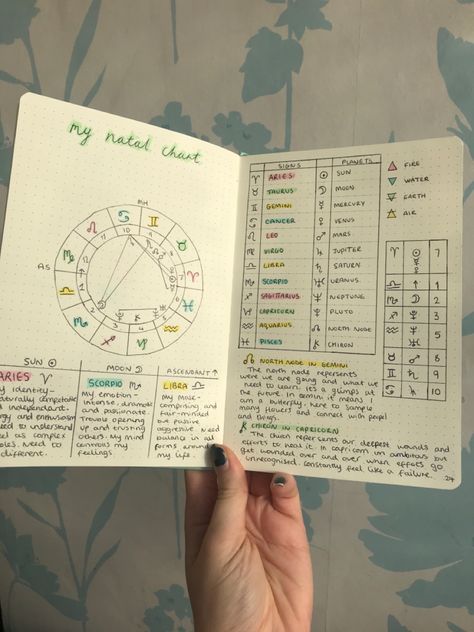 My natal chart
MH
AS
10
11
SUN ☉
ARIES ♈
identity -
naturally competitive
independant.
energy and enthusiasm
need to understand
complex
need to
different.
MOON ☽
SCORPIO ♏
my emotion -
intense, dramatic
and passionate.
trouble opening
up and trusting
others. My mind
controls my
feelings.
ASCENDANT ↑
LIBRA ♎
my mask -
comprising and
fair-minded
but passive
aggressive need
balance in all
forms around
my life.
SIGNS
PLANETS
♈ ARIES ☉ SUN
♉ TAURUS ☽ MOON
♊ GEMINI ☿ MERCURY
♋ CANCER ♀ VENUS
♌ LEO ♂ MARS
♍ VIRGO ♃ JUPITER
♎ LIBRA ♄ SATURN
♏ SCORPIO ♅ URANUS
♐ SAGITTARIUS ♆ NEPTUNE
♑ CAPRICORN ♇ PLUTO
♒ AQUARIUS ☊ NORTH NODE
♓ PISCES ⚷ CHIRON
FIRE
WATER
EARTH
AIR
7
1
2
3
5
8
9
10
☊ NORTH NODE IN GEMINI
The north node represents
were we are going and what we
need to learn. it's a glimps at
the future. In gemini it means I
am a butterfly, here to sample
many flowers and connect with people
and things.
⚷ CHIRON IN CAPRICORN
The chiron represents our deepest wounds and
efforts to heal it. In capricorn im ambitous but
get wounded over and over when efforts go
unrecognised. constantly feel like a failure.
24